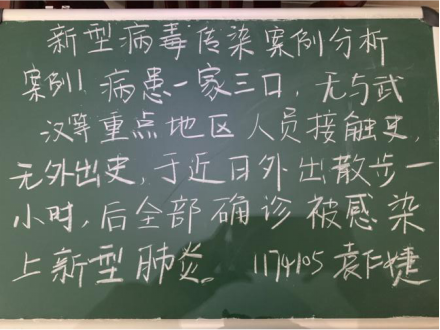 新型病毒传染案例分析
案例1 病患一家三口，无与武
汉等重点地区人员接触史，
无外出史，于近日外出散步一
小时，后全部确诊被感染
上新型肺炎。 1174105 袁仁捷